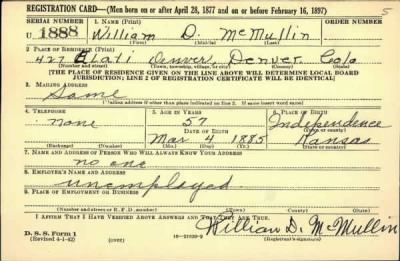 REGISTRATION CARD—(Men born on or after April 28, 1877 and on or before February 16, 1897) 5
SERIAL NUMBER 1. NAME (Print) ORDER NUMBER
U 1888 William D. McMullin
(First) (Middle) (Last)
2. PLACE OF RESIDENCE (Print)
427 Elati Denver, Denver Colo
(Number and street) (Town, township, village, or city) (County) (State)
[THE PLACE OF RESIDENCE GIVEN ON THE LINE ABOVE WILL DETERMINE LOCAL BOARD
JURISDICTION; LINE 2 OF REGISTRATION CERTIFICATE WILL BE IDENTICAL]
3. MAILING ADDRESS
Same
[Mailing address if other than place indicated on line 2. If same insert word same]
4. TELEPHONE 5. AGE IN YEARS 6. PLACE OF BIRTH
none 57 Independence
DATE OF BIRTH (Town or county)
Mar 4 1885 Kansas
(Exchange) (Number) (Mo.) (Day) (Yr.) (State or country)
7. NAME AND ADDRESS OF PERSON WHO WILL ALWAYS KNOW YOUR ADDRESS
no one
8. EMPLOYER'S NAME AND ADDRESS
unemployed
9. PLACE OF EMPLOYMENT OR BUSINESS
(Number and street or R. F. D. number) (Town) (County) (State)
I AFFIRM THAT I HAVE VERIFIED ABOVE ANSWERS AND THAT THEY ARE TRUE.
D. S. S. Form 1 William D. McMullin
(Revised 4-1-42) (over) 16—21630-2